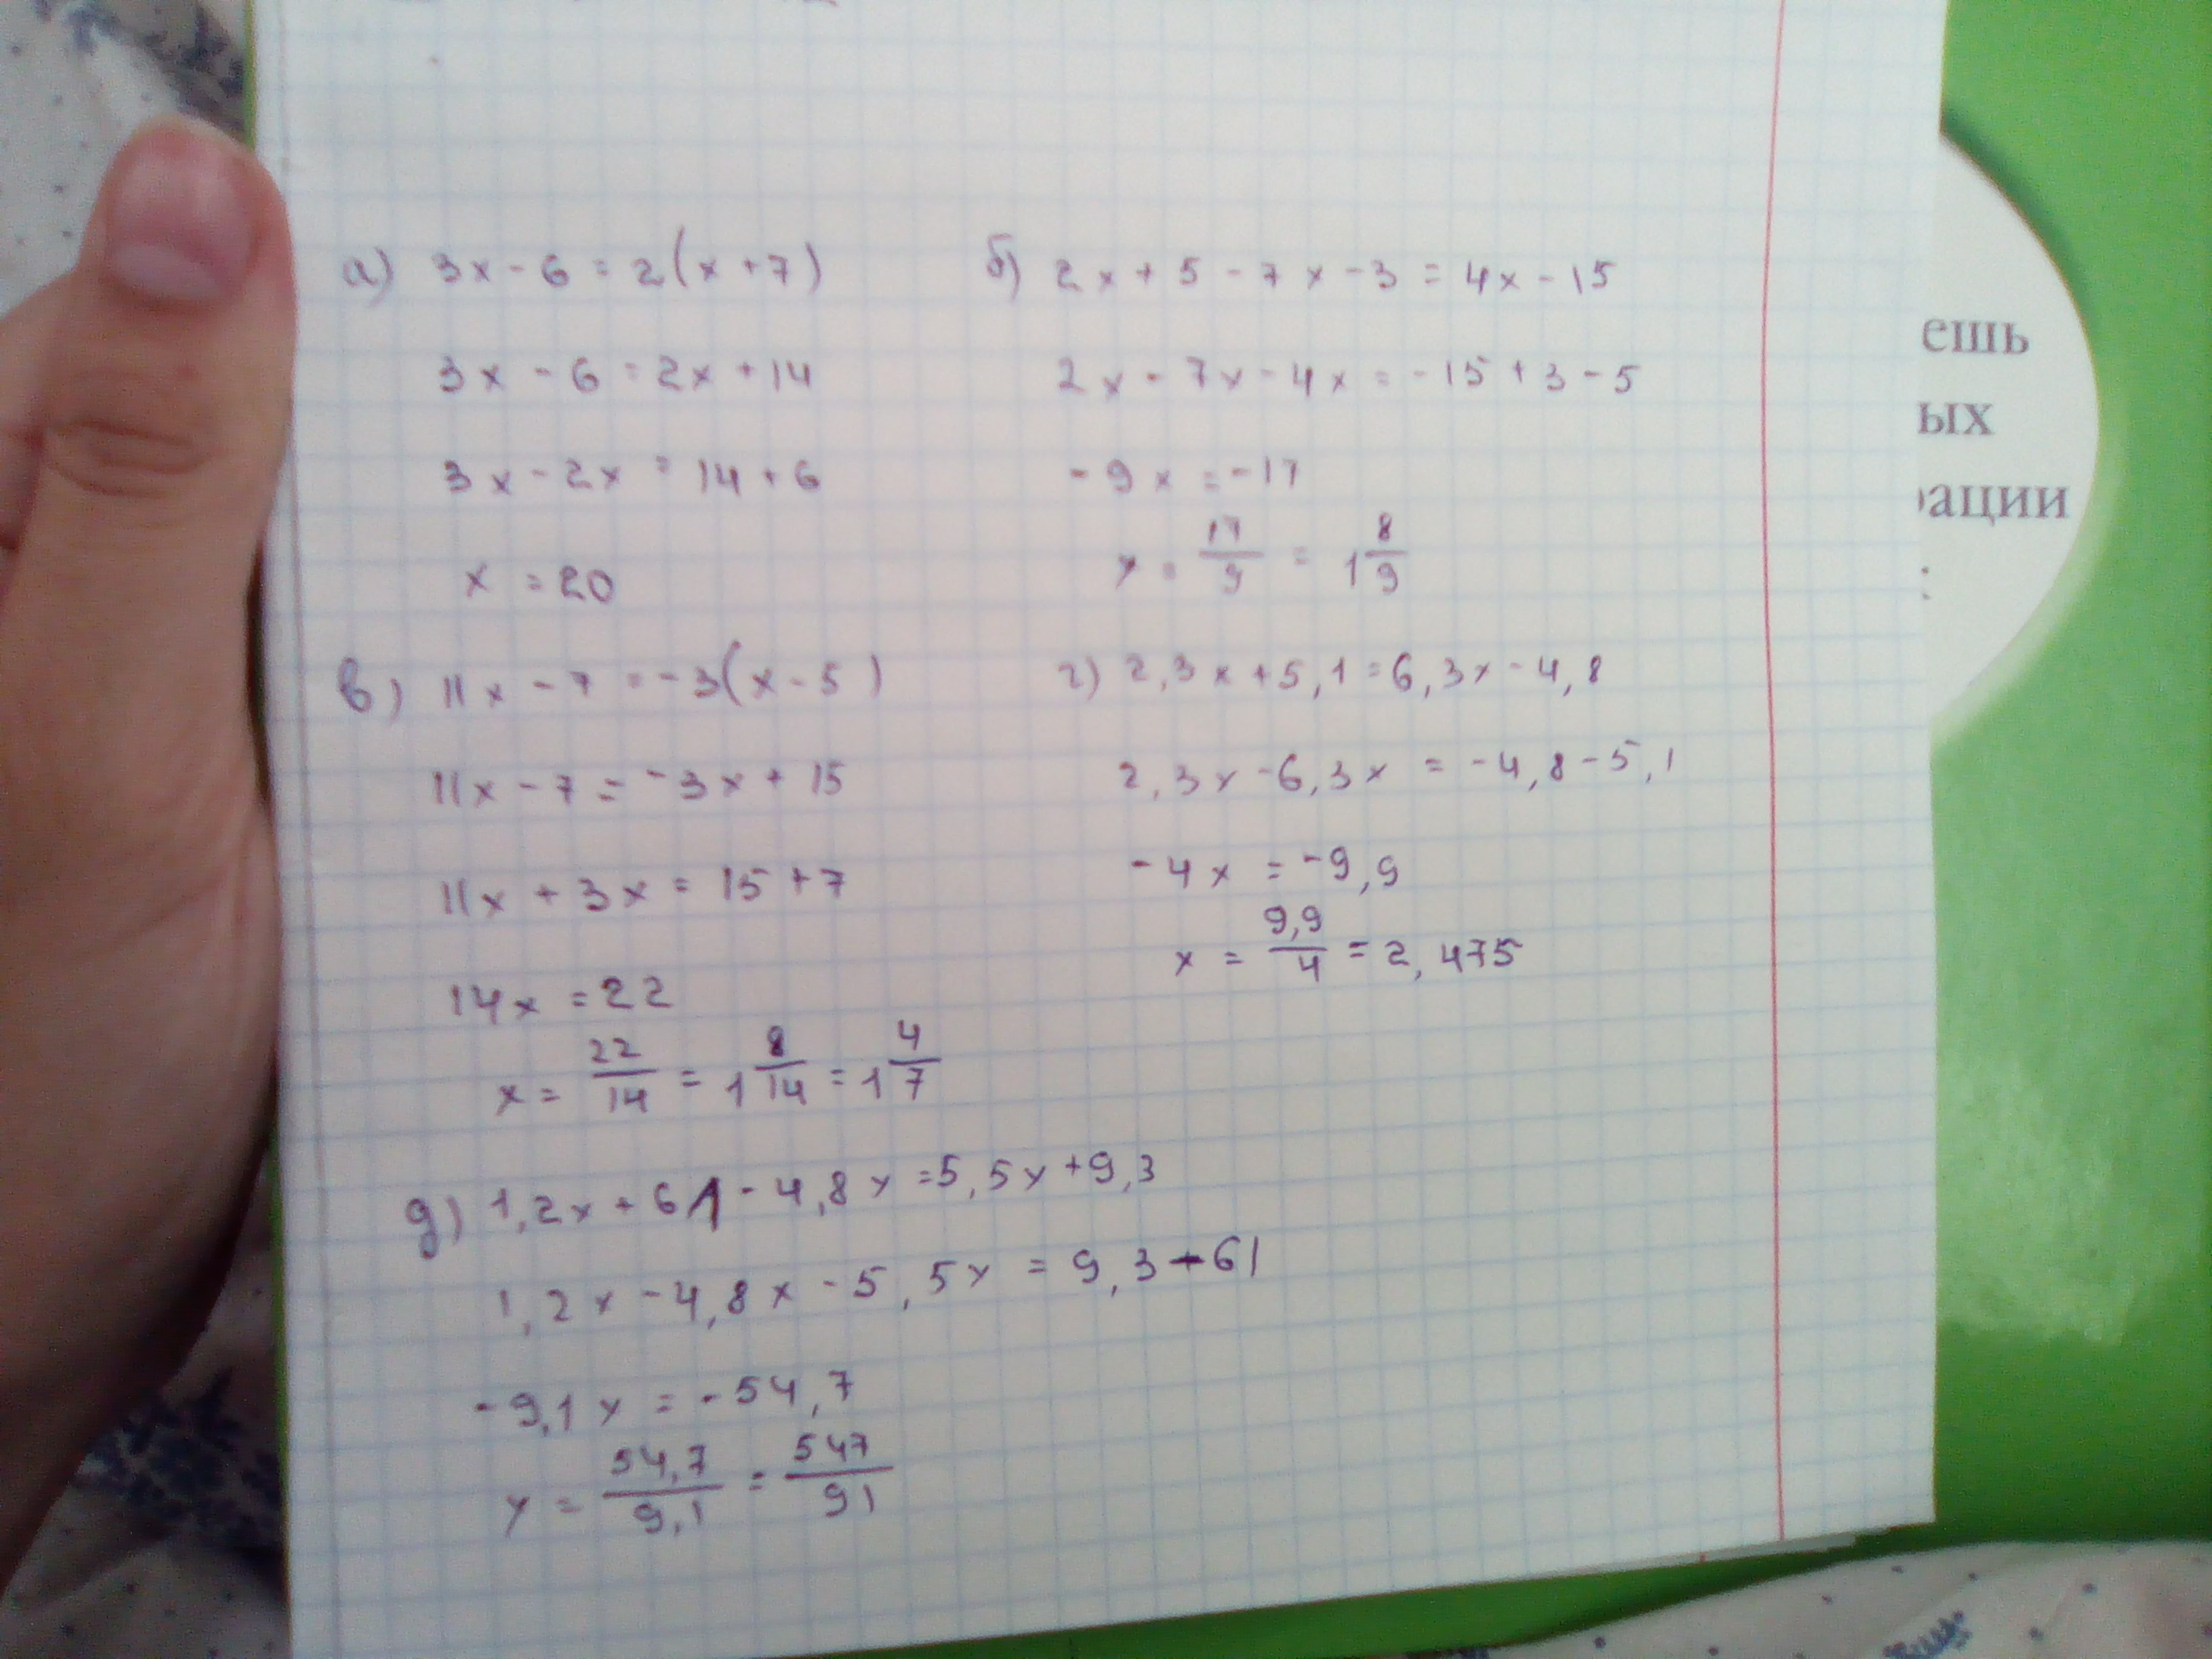 а) 3x - 6 = 2(x + 7)
3x - 6 = 2x + 14
3x - 2x = 14 + 6
x = 20
б) 2x + 5 - 7x - 3 = 4x - 15
2x - 7x - 4x = -15 + 3 - 5
-9x = -17
x = 17/9 = 1 8/9
в) 11x - 7 = -3(x - 5)
11x - 7 = -3x + 15
11x + 3x = 15 + 7
14x = 22
x = 22/14 = 1 8/14 = 1 4/7
г) 2,3x + 5,1 = 6,3x - 4,8
2,3x - 6,3x = -4,8 - 5,1
-4x = -9,9
x = 9,9/4 = 2,475
д) 1,2x + 61 - 4,8x = 5,5x + 9,3
1,2x - 4,8x - 5,5x = 9,3 - 61
-9,1x = -54,7
x = 54,7/9,1 = 547/91
ешь
ых
рации
: